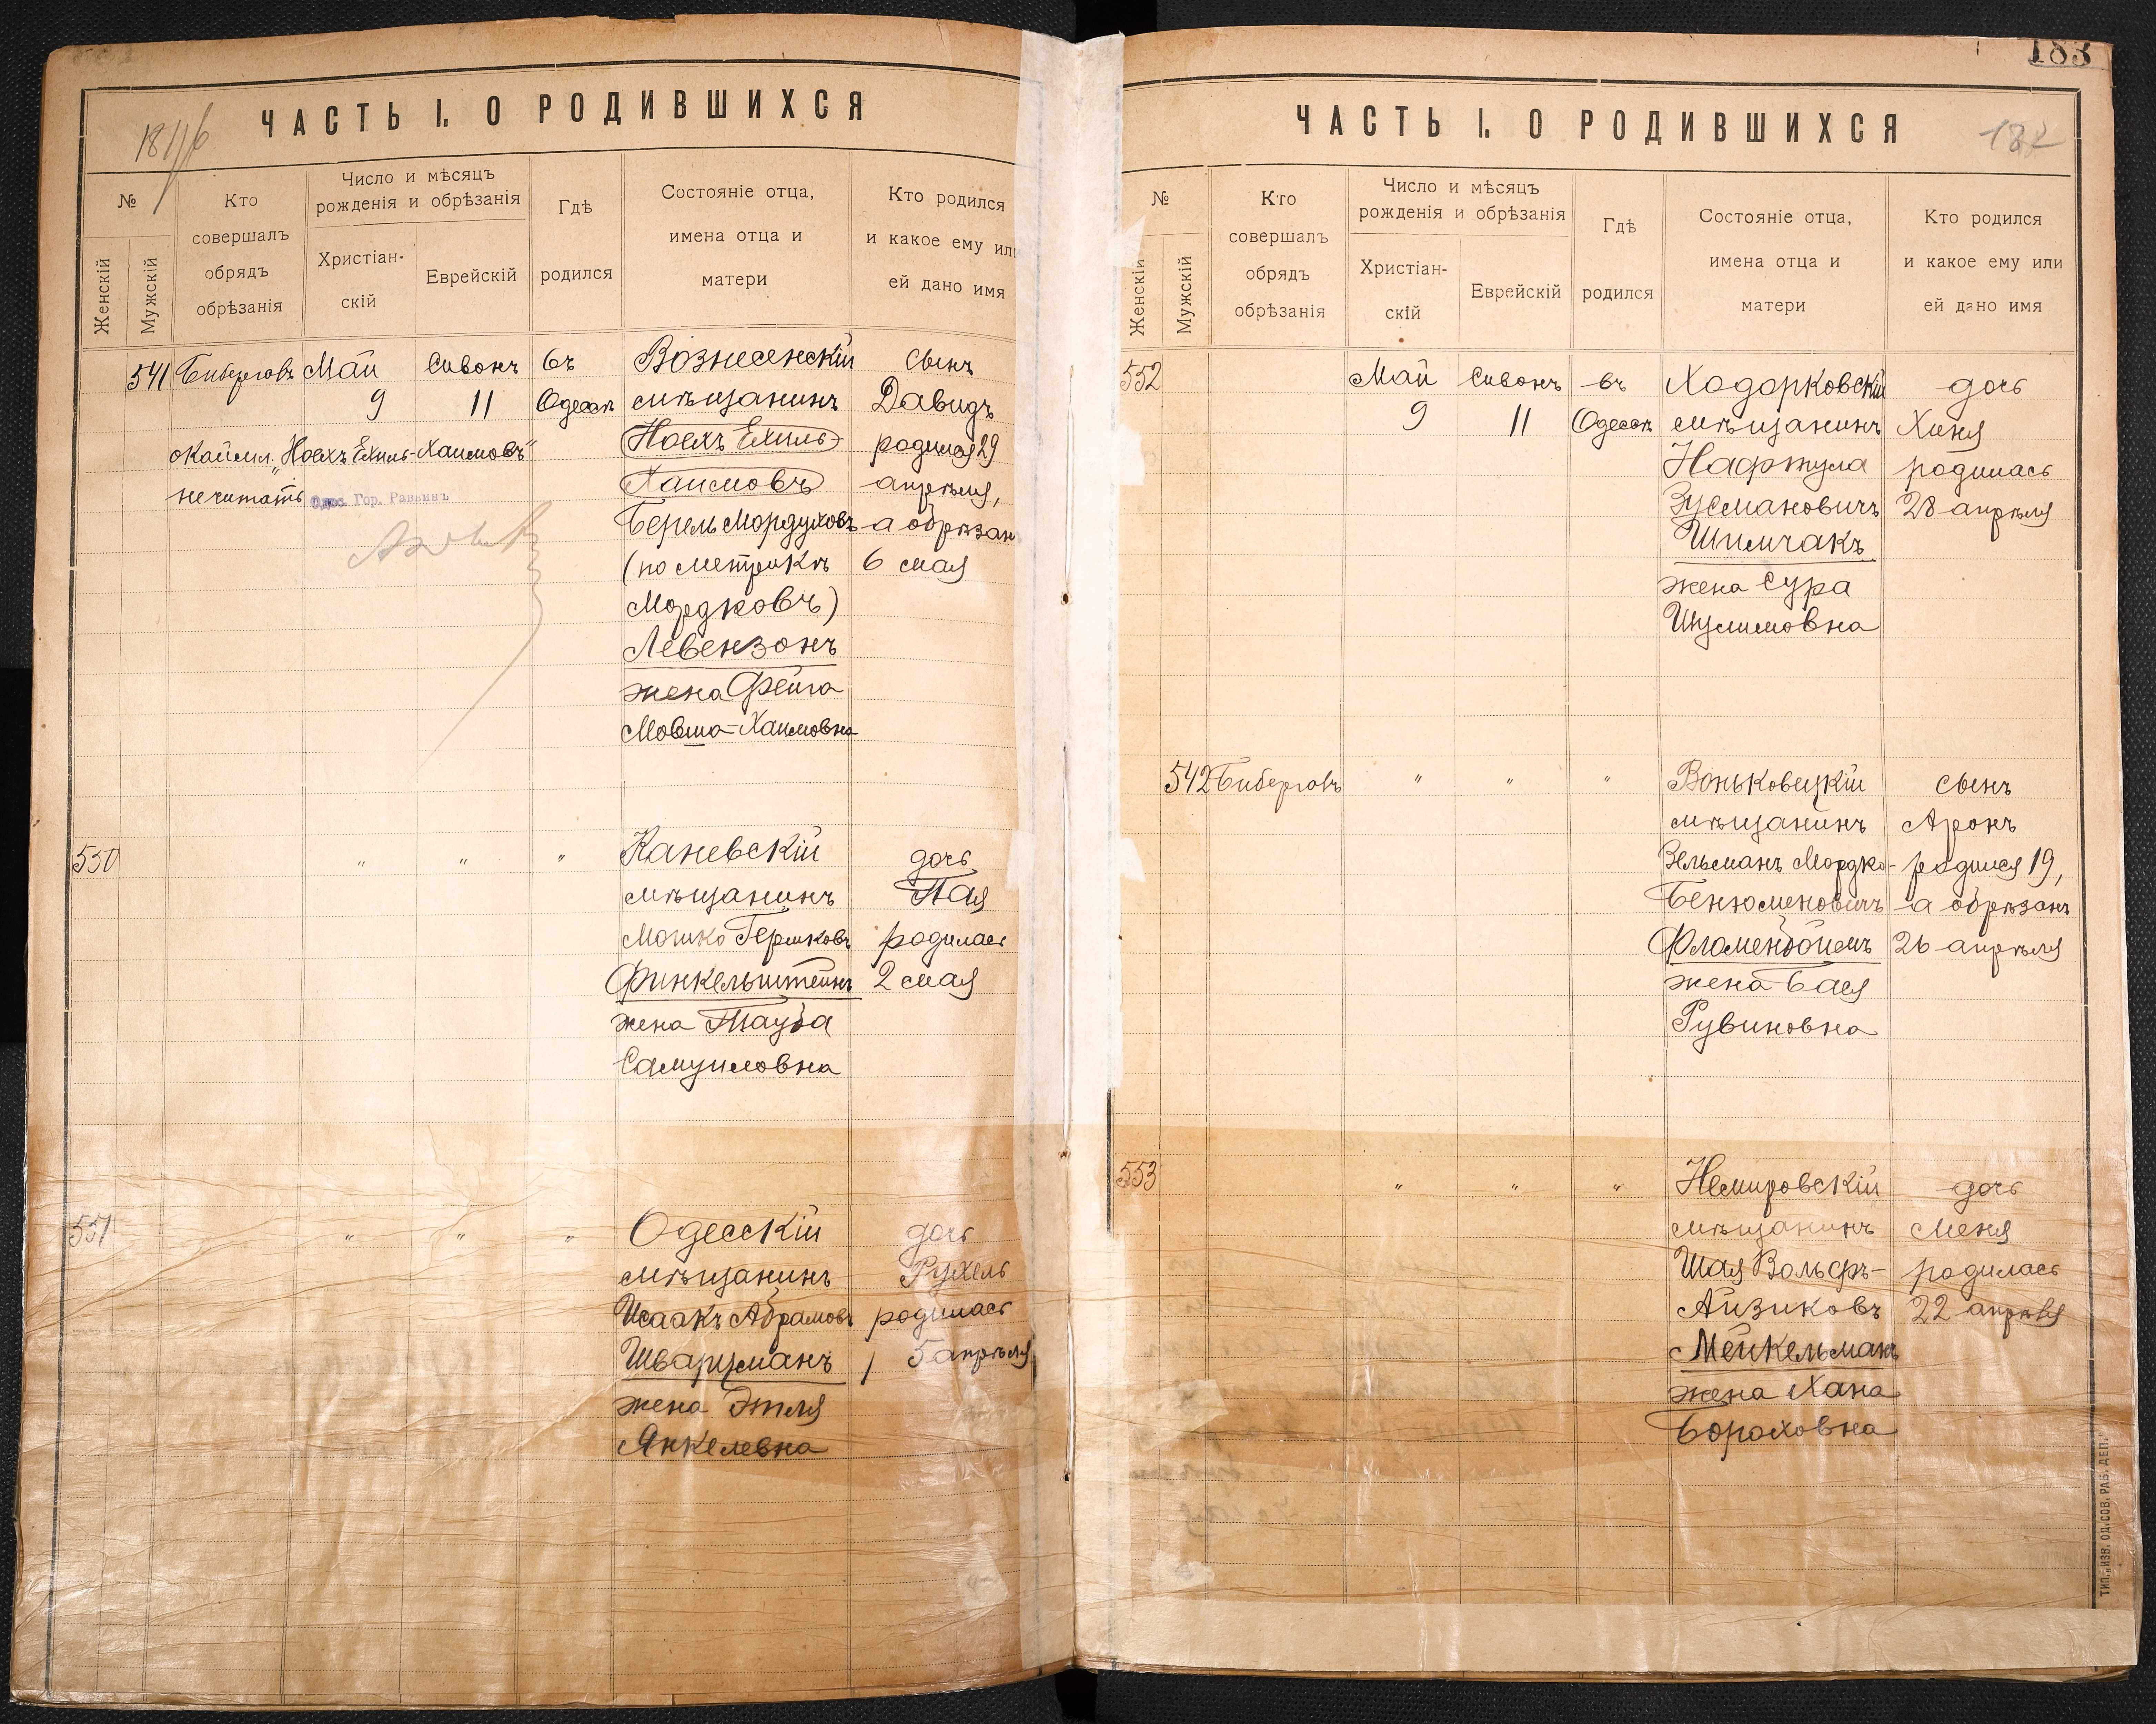 ЧАСТЬ I. О РОДИВШИХСЯ
№
Женскій
Мужскій
Кто
совершалъ
обрядъ
обрѣзанія
Число и мѣсяцъ
рожденія и обрѣзанія
Христіан-
скій
Еврейскій
Гдѣ
родился
Состояніе отца,
имена отца и
матери
Кто родился
и какое ему или
ей дано имя
541 Биберговъ Май Сивонъ въ Вознесенскій сынъ
9 11 Одессѣ мѣщанинъ Давидъ
окаймл. „Ноехъ Ехиль-Хаимовъ" Ноехъ Ехиль- родился 29
не читать Одес. Гор. Раввинъ Хаимовъ апрѣля,
Берель Мордуховъ а обрѣзан
(по метрикѣ 6 мая
Мордковъ)
Левензонъ
жена Фейга
Мовша-Хаимовна
550 " " " Каневскій дочь
мѣщанинъ Пая
Мошко Гершковъ родилась
Финкельштейнъ 2 мая
жена Тауба
Самуиловна
551 " " " Одесскій дочь
мѣщанинъ Рухель
Исаакъ Абрамовъ родилась
Шварцманъ 5 апрѣля
жена Этля
Янкелевна
183
ЧАСТЬ I. О РОДИВШИХСЯ
182
№
Женскій
Мужскій
Кто
совершалъ
обрядъ
обрѣзанія
Число и мѣсяцъ
рожденія и обрѣзанія
Христіан-
скій
Еврейскій
Гдѣ
родился
Состояніе отца,
имена отца и
матери
Кто родился
и какое ему или
ей дано имя
552 Май Сивонъ въ Ходорковскій дочь
9 11 Одессѣ мѣщанинъ Хиня
Нафтула родилась
Зусмановичъ 28 апрѣля
Шимчакъ
жена Сура
Шулимовна
542 Биберговъ " " " Воньковецкій сынъ
мѣщанинъ Аронъ
Зельманъ Мордко- родился 19,
Бенюменовичъ а обрѣзанъ
Фломенбоймъ 26 апрѣля
жена Бася
Рувиновна
553 " " " Немировскій дочь
мѣщанинъ Меня
Шая Вольфъ- родилась
Айзиковъ 22 апрѣля
Мейкельманъ
жена Хана
Бороховна
ТИП. ИЗВ. ОД. СОВ. РАБ. ДЕП.